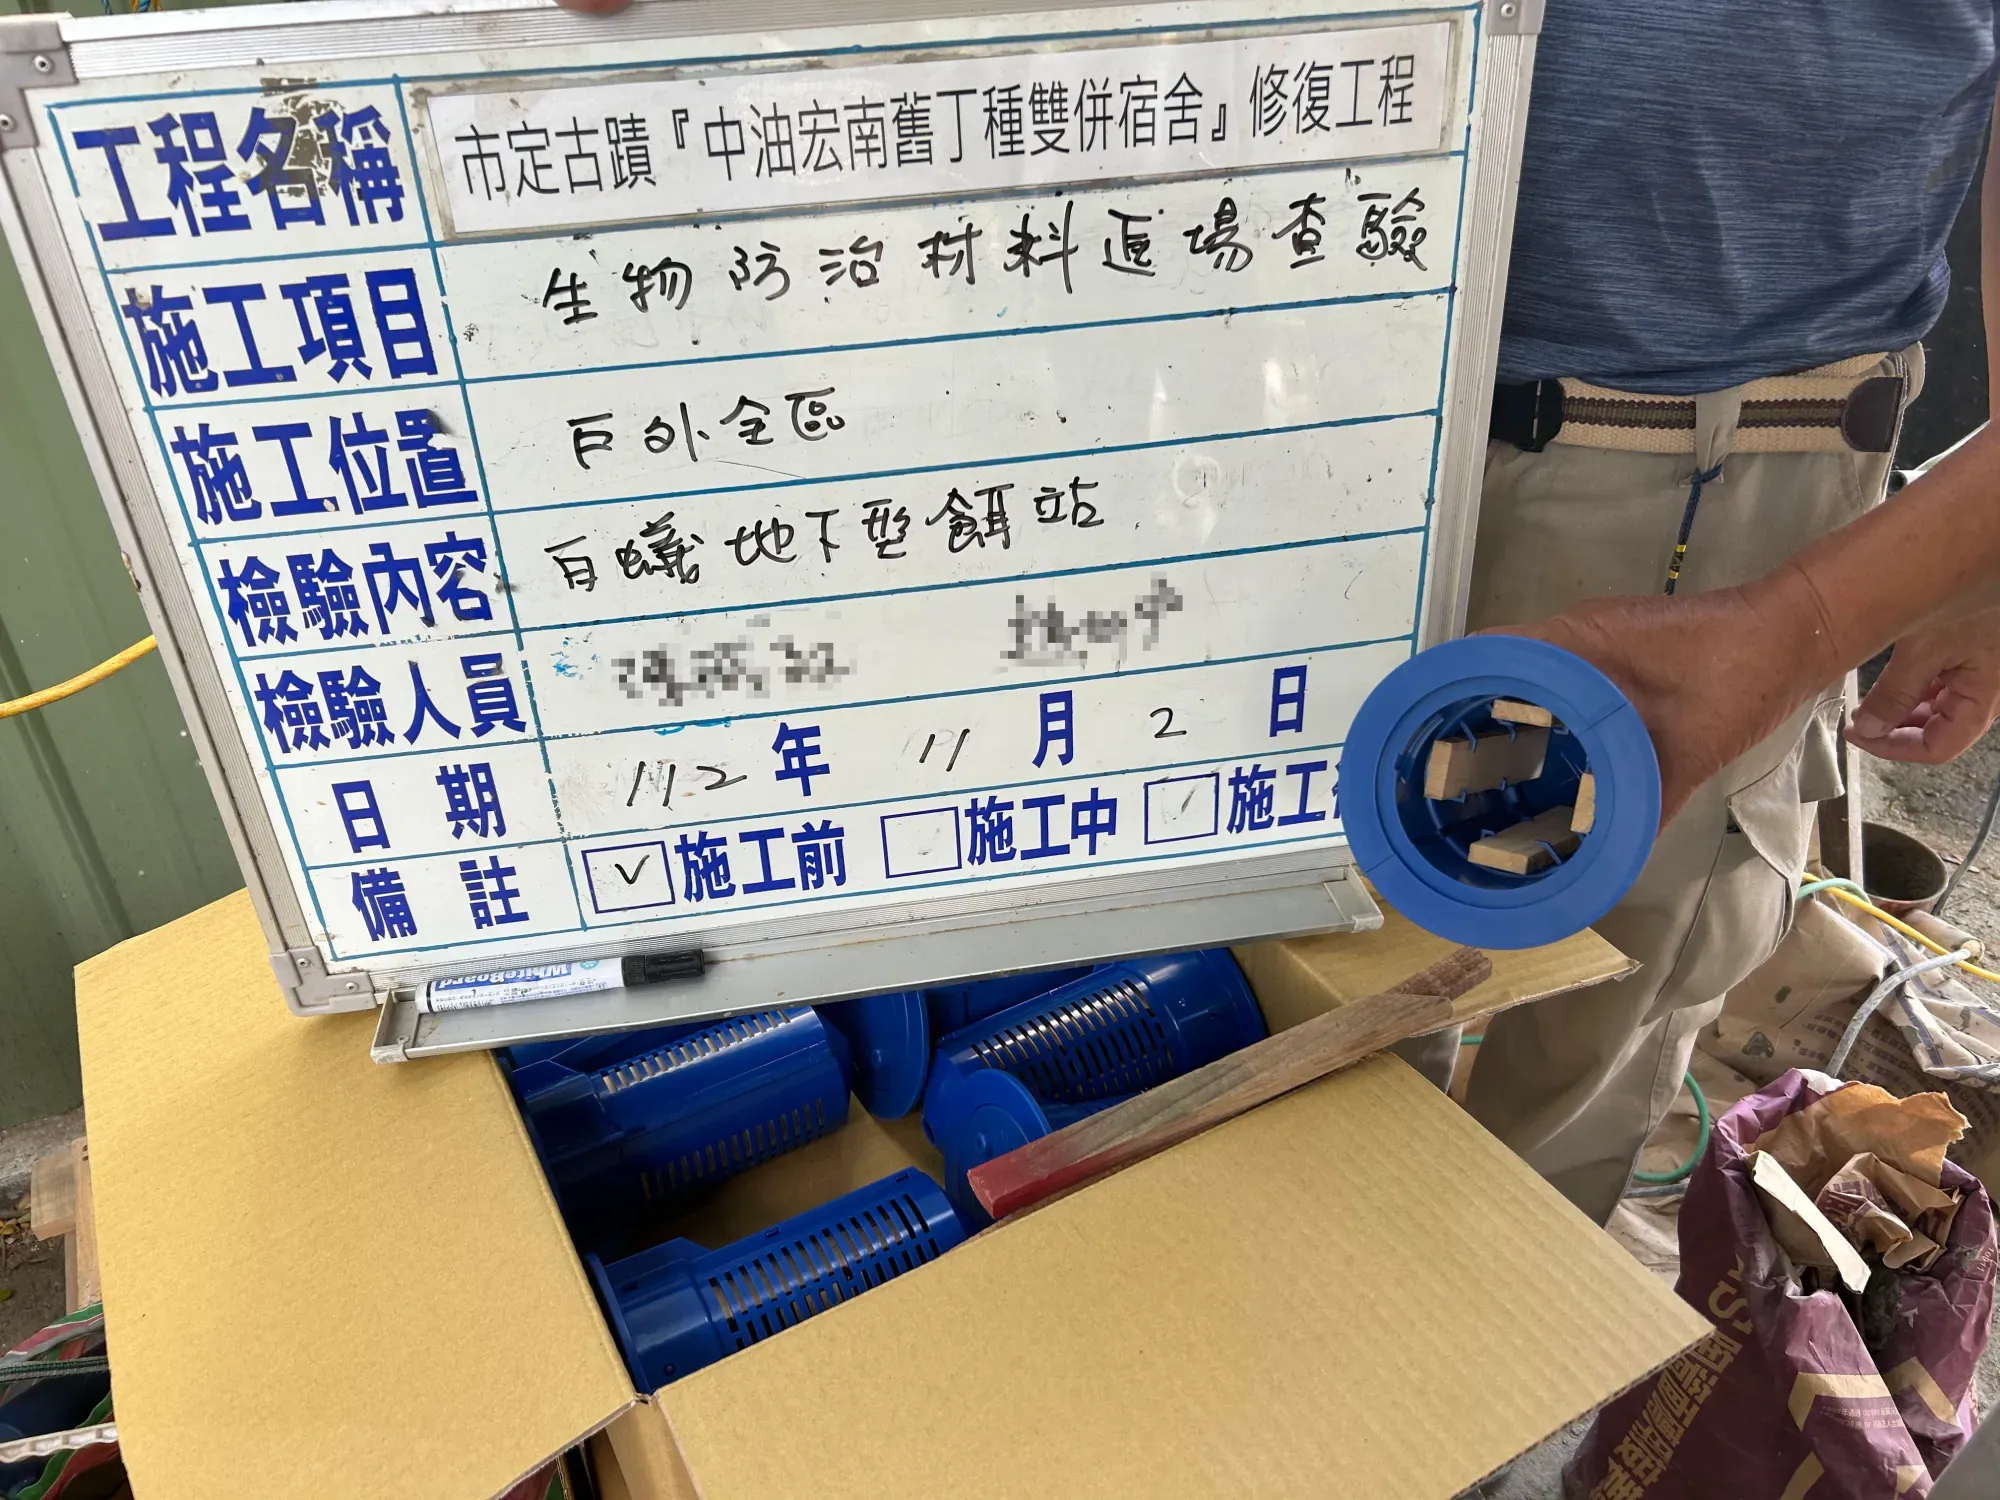 工程名稱 市定古蹟『中油宏南舊丁種雙併宿舍』修復工程
施工項目 生物防治材料進場查驗
施工位置 戶外全區
檢驗內容 白蟻地下型餌站
檢驗人員
日期 112年11月2日
備註 ☑施工前 □施工中 □施工
WhiteBoard